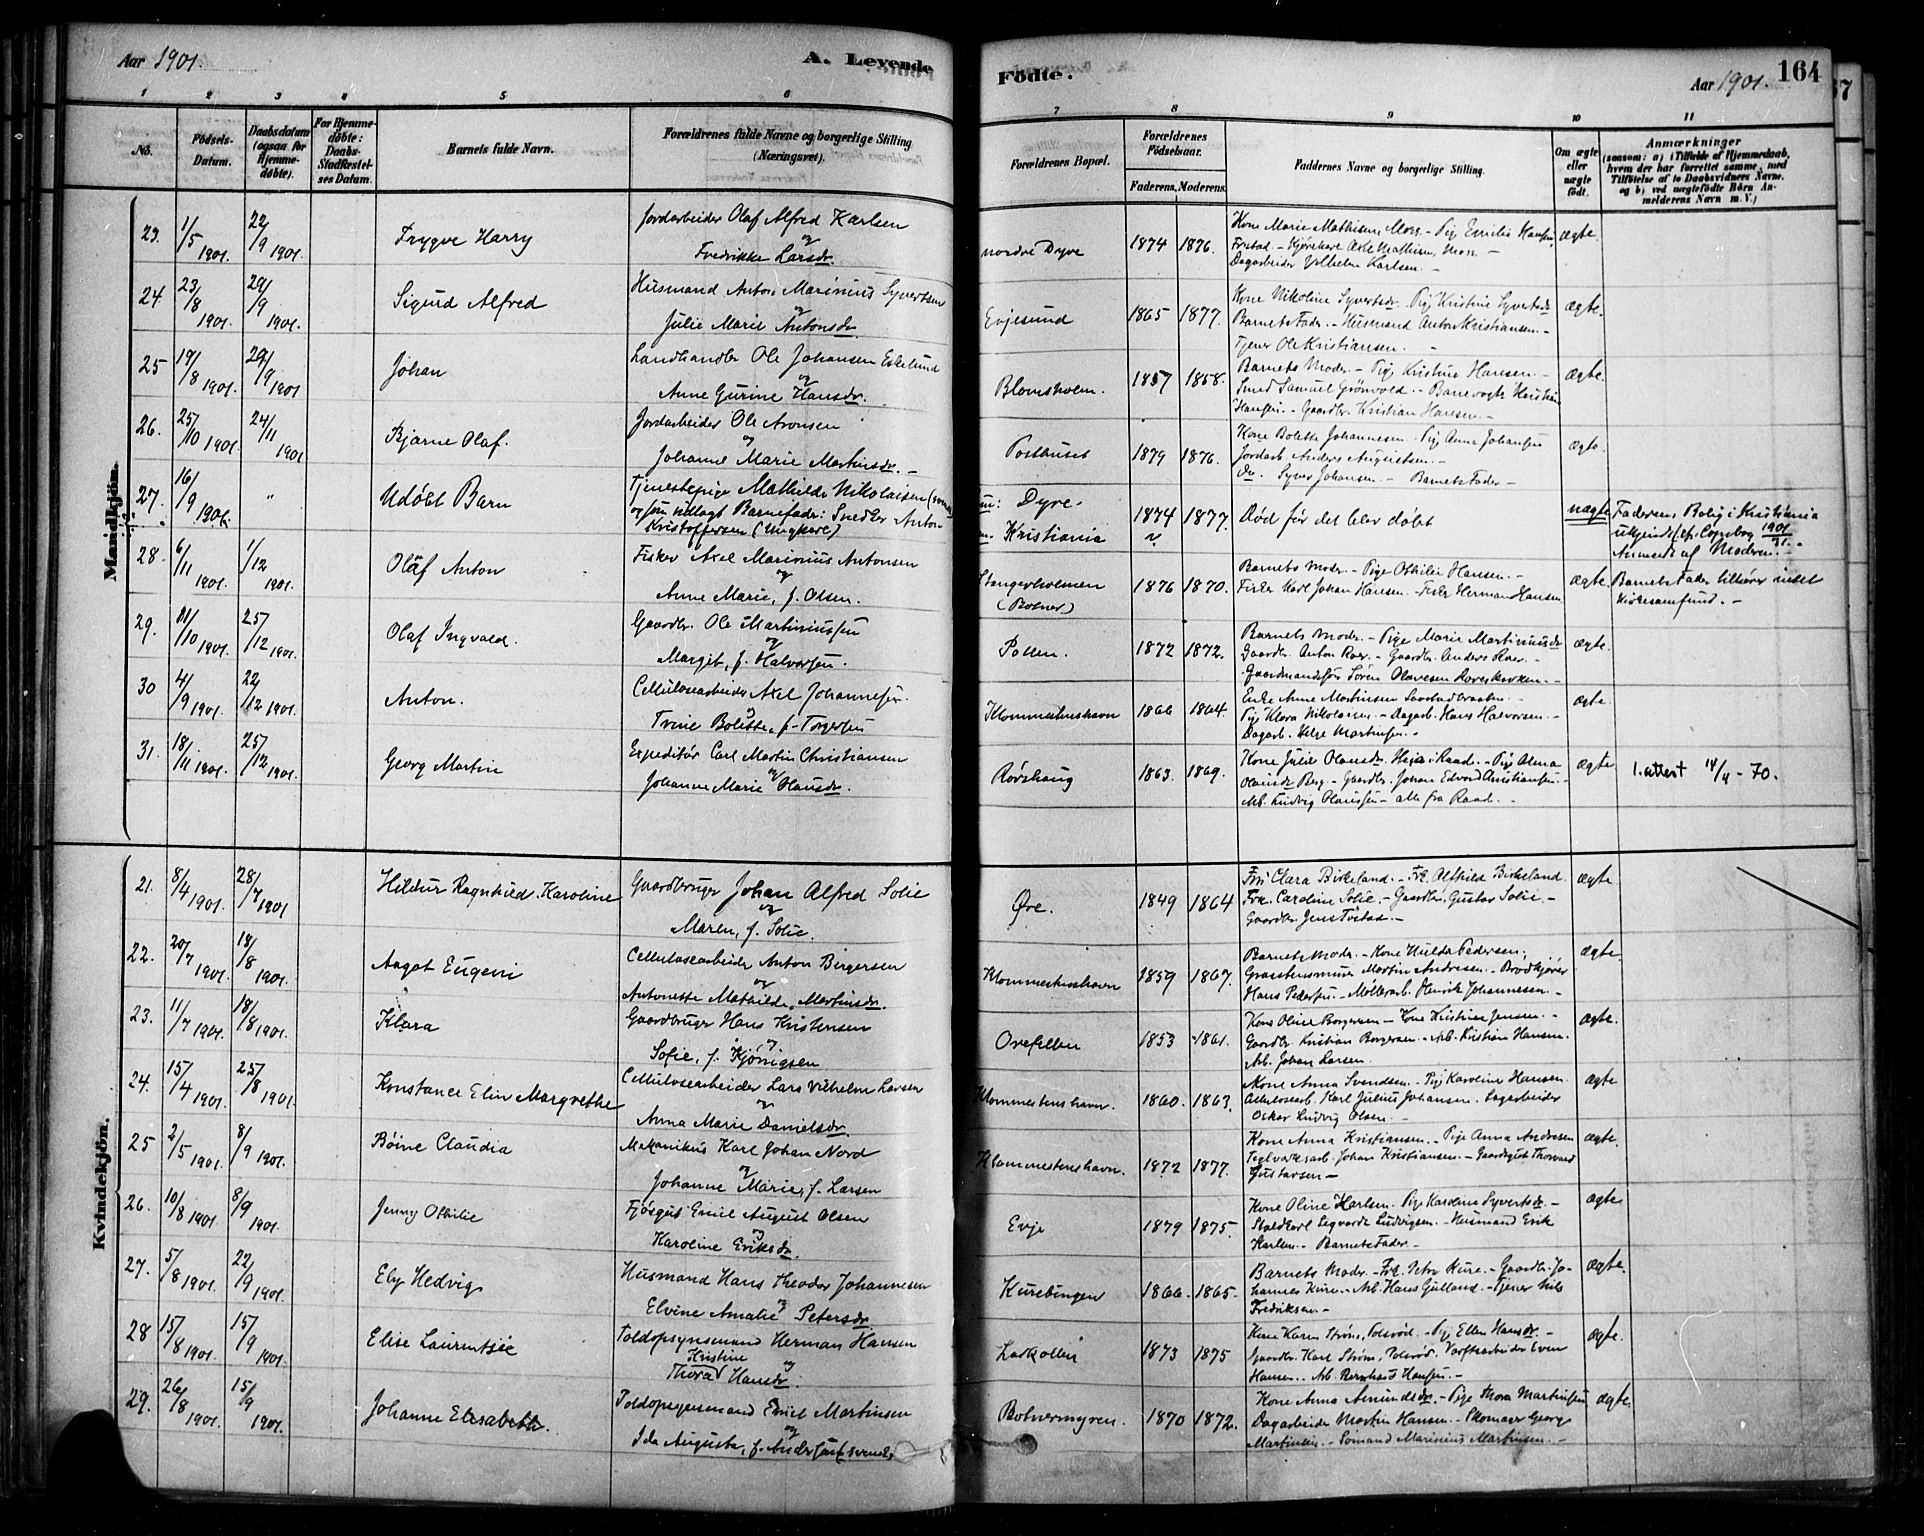 Aar 1901.
A. Levende
Fødte.
Aar 1901.
164
37
1 2 3 4 5 6
7 8 9 10 11
No.
Fødsels-Datum.
Daabsdatum (ogsaa for Hjemmedøbte).
For Hjemmedøbte: Daabs-Stadfæstelses Datum.
Barnets fulde Navn.
Forældrenes fulde Navne og borgerlige Stilling (Næringsvei).
Forældrenes Bopæl.
Forældrenes Fødselsaar.
Faderens. Moderens.
Faddernes Navne og borgerlige Stilling.
Om ægte eller uægte født.
Anmærkninger
(saasom: a) i Tilfælde af Hjemmedaab, hvem der har forrettet samme, med Tilføielse af to Daabsvidners Navne, og b) ved uægtefødte Børn Anmelderens Navn m. V.)
Mandkjøn.
23. 1/5 1901. 22/9 1901. Trygve Harry
Jordarbeider Olaf Alfred Karlsen
og
Fredrikke Larsdr.
nordre Dyre 1874 1876.
Kone Marie Mathisen, Moss - Pige Emilie Hansen,
Vilhelm Karlsen. -
ægte.
24 23/8 1901. 29/9 1901. Sigurd Alfred
Husmand Anton Marinius Syvertsen
og
Julie Marie Antonsdr.
Evjesund 1865 1877.
Kone Nikoline Syvertsdr. Pige Kristine Syvertsdr
Barnets Fader. - Husmand Anton Kristiansen. -
Tjener Ole Kristiansen.
ægte.
25 19/8 1901. 29/9 1901 Johan
Landhandler Ole Johansen Eskelund
og
Anne Gurine Hansdr.
Blomsholm. 1857 1858.
Barnets Moder. - Pige Kristine Hansen. -
Smed Samuel Grønvold. -
Hansen. - Gaardbr. Kristian Hansen. -
ægte.
26. 25/10 1901. 24/11 1901 Bjarne Olaf.
Jordarbeider Ole Aronsen
og
Johanne Marie Martinsdr. -
Posthuset 1879 1876.
Kone Bolette Johannesen. Pige Anna Johansen
Jordarb. Anders Augustsen. -
Do. Syver Johansen. - Barnets Fader. -
ægte.
27. 16/9 1901. " Udøbt Barn
Tjenestepige Mathilde Nikolaisen
og som udlagt Barnefader: Snedker Anton
Kristoffersen (Ungkarl)
Dyre.
Kristiania
1874 1877.
Død før det blev døbt
uægte
Faderens Bolig i Kristiania
ukjendt
Anmeldt af Moderen. -
28. 6/11 1901. 1/12 1901. Olaf Anton
Fisker Axel Marinius Antonsen
og
Anne Marie, f. Olsen.
Stangerholmen
(Botner)
1876 1870.
Barnets Moder. - Pige Othilie Hansen. -
Fisker Karl Johan Hansen. Fisker Herman Hansen
ægte.
Barnets Fader tilhører intet
Kirkesamfund. -
29. 21/10 1901. 25/12 1901. Olaf Ingvald.
Gaardbr. Ole Martiniussen
og
Margit, f. Halvorsen.
Pollen. 1872 1872.
Barnets Moder. - Pige Marie Martiniusdr
Gaardbr. Anton Roer. - Gaardbr. Anders Roer. -
Søren Olavesen
ægte.
30 4/9 1901. 22/12 1901. Anton.
Cellulosearbeider Axel Johannesen.
og
Trine Bolette, f. Torgersen
Klommestenshavn 1866 1864.
Enke Anne Martinsen
Pige Klara Nikolaisen. - Dagarb. Hans Halvorsen. -
Dagarb. Helge Martinsen. -
ægte.
31. 18/11 1901. 25/12 1901. Georg Martin
Expeditør Carl Martin Christiansen
og
Johanne Marie Olausdr.
Rørshaug 1863. 1869.
Kone Julie Olausdr. i Raade. - Pige Alma
Olausdr Berg. - Gaardbr. Johan Edvard Christiansen. -
Arb. Ludvig Olaussen - alle fra Raade. -
ægte
1. attest 14/4 - 70.
Kvindekjøn.
21. 8/4 1901. 28/7 1901 Hildur Ragnhild Karoline
Gaardbruger Johan Alfred Solie
og
Maren, f. Solie.
Øre. 1849 1864
Fru Clara Birkeland. - Frk. Althild Birkeland
Frk. Caroline Solie. - Gaardbr. Gustav Solie. -
Gaardbr. Jens Tostad. -
ægte
22. 20/7 1901. 18/8 1901. Aagot Eugeni
Cellulosearbeider Anton Birgersen
og
Antonette Mathilde, Martinsdr.
Klommestenshavn 1859 1867.
Barnets Moder. - Kone Hulda Pedersen,
Martin Andresen. - Brødkjører
Hans Pedersen. - Møllerarb. Henrik Johannessen. -
ægte.
23. 11/7 1901. 18/8 1901. Klara
Gaardbruger Hans Kristensen
og
Sofie, f. Kjønigsen
Orefellen 1853 1861.
Kone Oline Borgersen - Kone Kristine Jensen. -
Gaardbr. Kristian Borgersen. - Arb. Kristian Hansen.
Arb. Johan Larsen.
ægte.
24. 15/4 1901. 25/8 1901. Konstance Elin Margrethe
Cellulosearbeider Lars Vilhelm Larsen
og
Anna Marie Danielsdr.
Klommestenshavn. 1860. 1863.
Kone Anna Svendsen. - Pige Karoline Hansen.
Cellulosearb. Karl Julius Johansen. Sagarbeider
Oskar Ludvig Olsen. -
ægte
25 2/5 1901. 8/9 1901. Böine Claudia
Mekanikus Karl Johan Nord
og
Johanne Marie, f. Larsen
Klommestenshavn. 1872 1877.
Kone Anna Kristiansen. - Pige Anna Andresen
Teglverksarb. Johan Kristiansen. - Gaardsgut Thorvald
Gustavsen -
ægte.
26. 10/8 1901. 8/9 1901. Jenny Othilie
Fjøsgut Emil August Olsen
og
Karoline Eriksdr.
Evje 1879 1875.
Kone Oline Karlsen. Pige Karoline Syvertsdr. -
Staldkarl Sigvardt Ludvigsen. - Husmand Erik
Karlsen. - Barnets Fader. -
ægte
27. 5/8 1901. 22/9 1901. Ely Hedvig
Husmand Hans Theodor Johannesen
og
Elvine Amalie Petersdr.
Kurebingen 1866. 1865.
Barnets Moder. - Frk. Petra Kure. - Gaardbr. Jo-
hannes Kure. - Arb. Hans Gulland. - Tjener Nils
Fredriksen. -
ægte.
28 15/8 1901. 15/9 1901 Elise Laurentze
Toldopsynsmand Herman Hansen
Kristine og
Thora Hansdr.
Larkollen 1873 1875
Kone Karen Strøm, . - Pige Ellen Hansdr. -
Gaardbr. Karl Strøm, . Værftsarbeider Even
Hansen. - Arb. Bernhard Hansen. -
ægte.
29. 26/8 1901. 15/9 1901. Johanne Elisabeth.
Toldopsynsmand Emil Martinsen
og
Ida Augusta, f. Andersen
Botnermyren. 1870 1872.
Kone Anna Amundsdr. - Pige Thora Martinsen
Dagarbeider Martin Hansen. - Skomager Georg
Martinsen. - Sømand Marinius Martinsen. -
ægte.